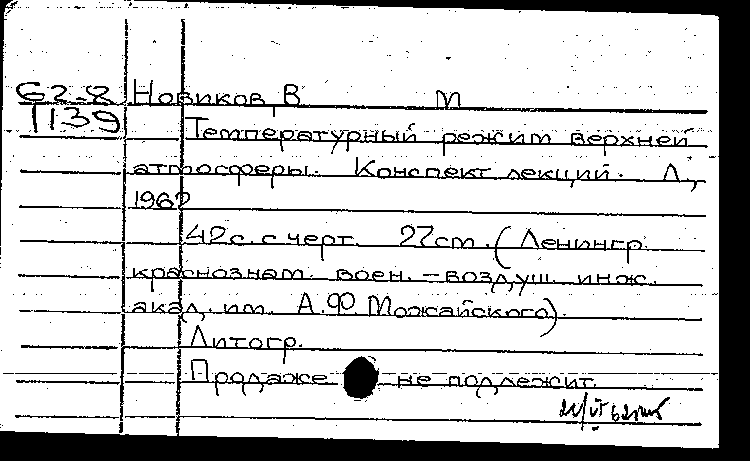 62-8 Новиков, В М
1139 Температурный режим верхней
атмосферы. Конспект лекций. Л.,
1962
42с. с черт. 27cm. (Ленингр.
краснознам. воен.-воздуш. инж.
акад. им. А.Ф. Можайского)
Литогр.
Продаже не подлежит.